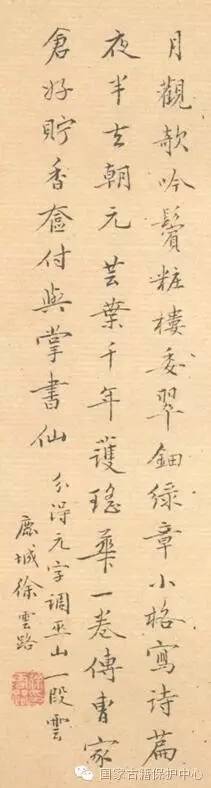 月觀款吟鬢粧樓委翠鈿綠章小格寫诗篇
夜半去朝元芸葉千年護瑤華一卷傳曹家
倉好貯香奩付與掌書仙
分得元字調巫山一段雲
鹿城徐雲路
国家古籍保护中心